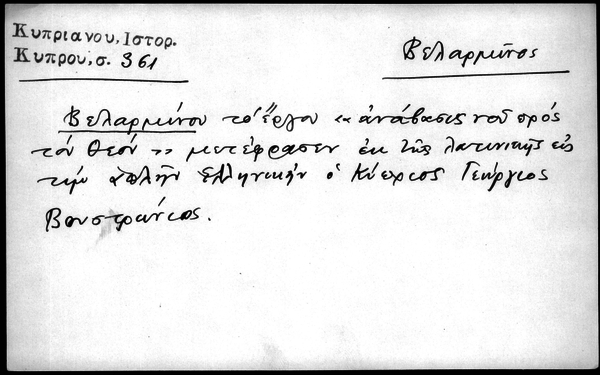 Κυπριανου, Ιστορ.
Κυπρου, σ. 361
Βελαρμῖνος
Βελαρμίνου τὸ ἔργον «ἀνάβασις νοῦ πρὸς
τὸν Θεόν» μετέφρασεν ἐκ τῆς λατινικῆς εἰς
τὴν ἁπλῆν ἑλληνικὴν ὁ Κύπριος Γεώργιος
Βουστρώνιος.